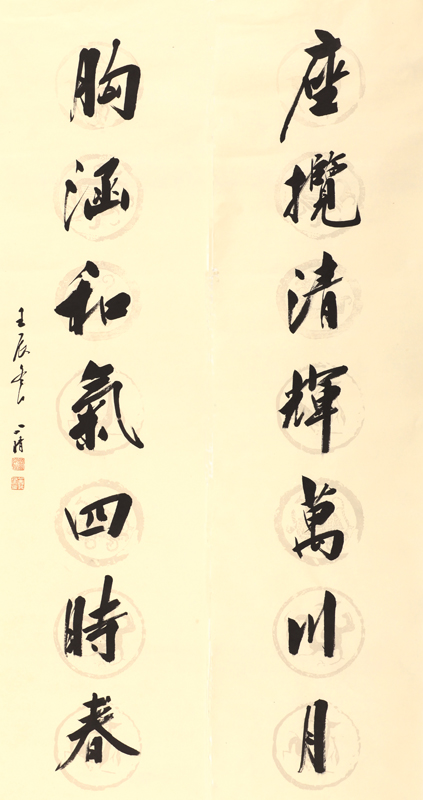 座攬清輝萬川月
胸涵和氣四時春
壬辰春